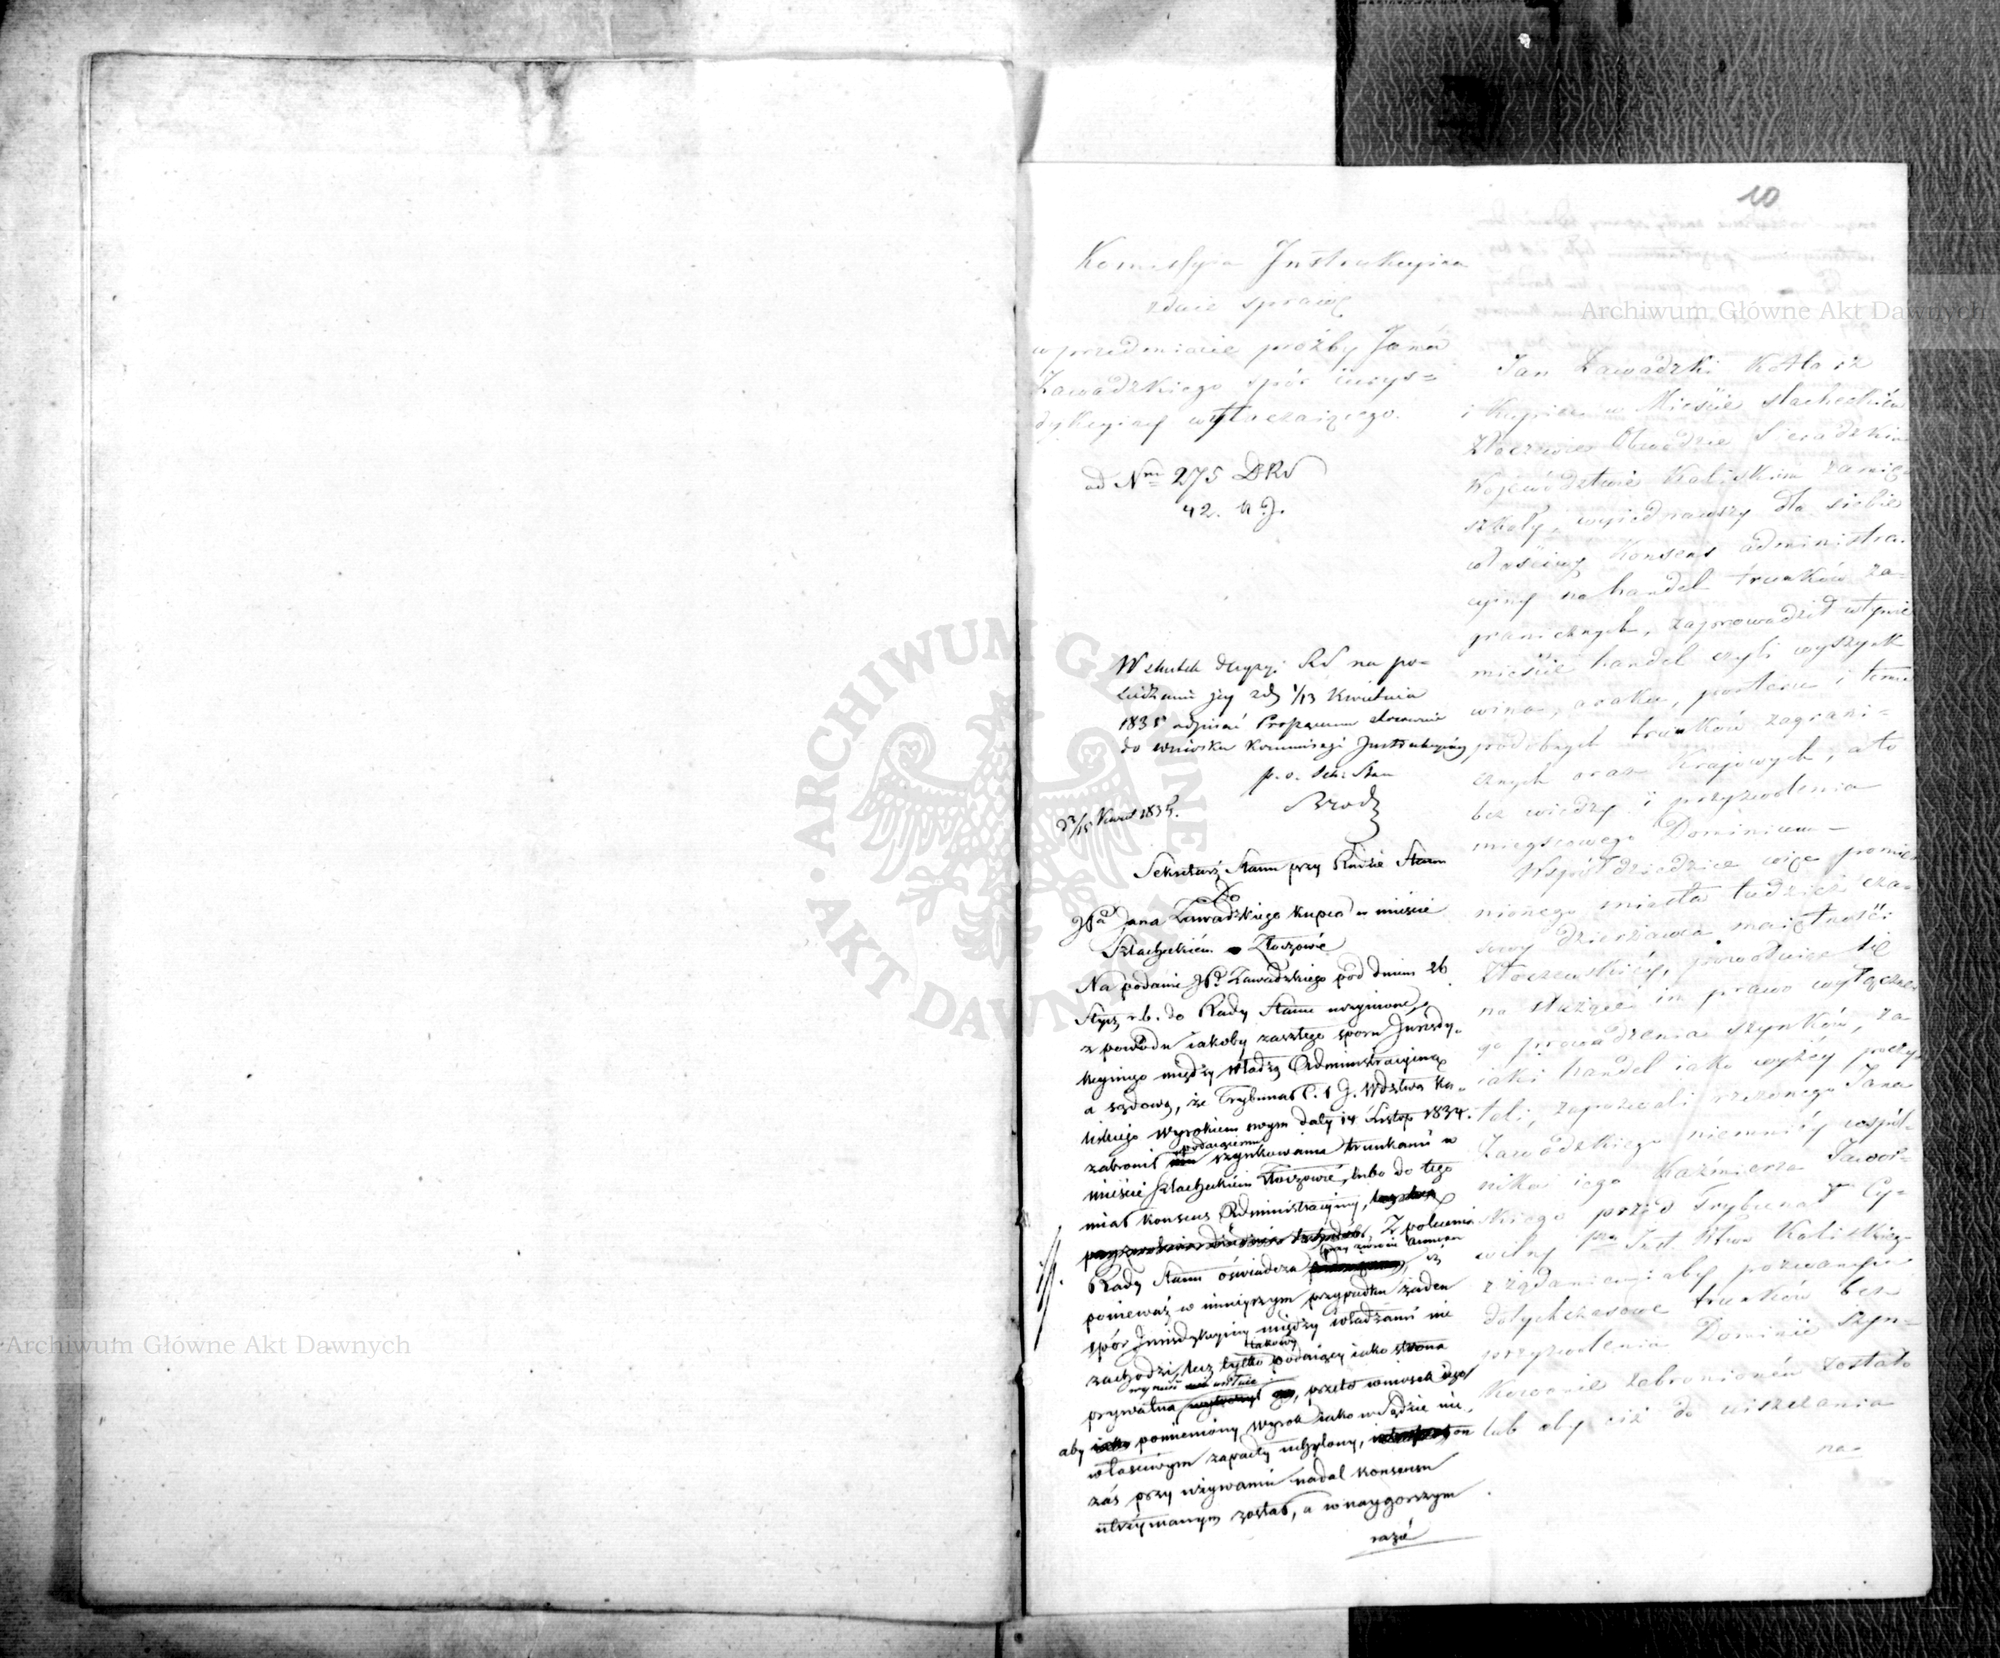 10
Komissyia Instrukcyina
zdaie sprawę
w przedmiocie proźby Jana
Zawadzkiego spór iurys=
dykcyiny wytaczaiącego.
ad Nrm 275 DRS
42. K. J.
W skutek decyzyi RS na po=
siedzeniu jej z d. 1/13 Kwietnia
1835 odpisać stosownie
do wniosku Kommissyi Instrukcyiney
p. o. Sek: Stanu
d 3/15 Kwiet 1835.
Sekretarz Stanu przy Radzie Stanu
Do
Jana Zawadzkiego kupca w mieście
Szlacheckiem Złoczowie
Na podanie Zawadzkiego pod dniem 26
Stycz r. b. do Rady Stanu uczynione,
z powodu iakoby zaszłego sporu Jurysdy=
kcyinego między władzą Administracyiną
a sądową, że Trybunał C. I J. Wdztwa Ka=
liskiego wyrokiem swym daty 14 Listop 1834.
podaiącemu
zabronił szynkowania trunkami w
mieście Szlacheckiem Złoczowie, lubo do tego
miał konsens Administracyiny,
Z polecenia
przy zwrocie
Rady Stanu oświadcza iż
ponieważ w ninieyszym przypadku żaden
spór Jurisdykcyiny między władzami nie
takowy
zachodzi, lecz tylko podaiący iako strona
prywatna przeto wniosek iego
aby pomieniony wyrok iako w Sądzie nie
właściwym zapadły uchylony, on
zaś przy używaniu nadal konsensu
utrzymanym został, a w naygorszym
razie
Jan Zawadzki Kotlarz
i Kupiec w Mieście slacheckiém
Złoczewie Obwodzie Sieradzkim
Wojewódzwie Kaliskim zamie=
szkały, wyiednawszy dla siebie
właściwy Konsens administra=
cyiny na handel trunków za=
granicznych, zaprowadził w tymże
mieście handel czyli wyszynk
wina, araku, porteru i temu
podobnych trunków zagrani=
cznych oraz Kraiowych, a to
bez wiedzy i przyzwolenia
mieyscowego Dominium—
Współdziedzice więc pomie=
nionego miasta tudzież cza=
sowy dzierżawca maiętności
Złoczewskiéy, powołuiąc się
na służące im prawo wyłączne=
go prowadzenia szynków, za
iaki handel iako wyżéy poczy=
tali, zapozwali rzeczonego Jana
Zawadzkiego niemniéy wspól=
nika iego Kaźmierza Jawor=
skiego przed Trybunał Cy=
wilny Iszej Inst. Wdztwa Kaliskiego
z żądaniem aby pozwanym
dotychczasowe trunków bez
przyzwolenia Dominii szyn=
kowanie zabronioném zostało
lub aby ciż do uiszczania
na=